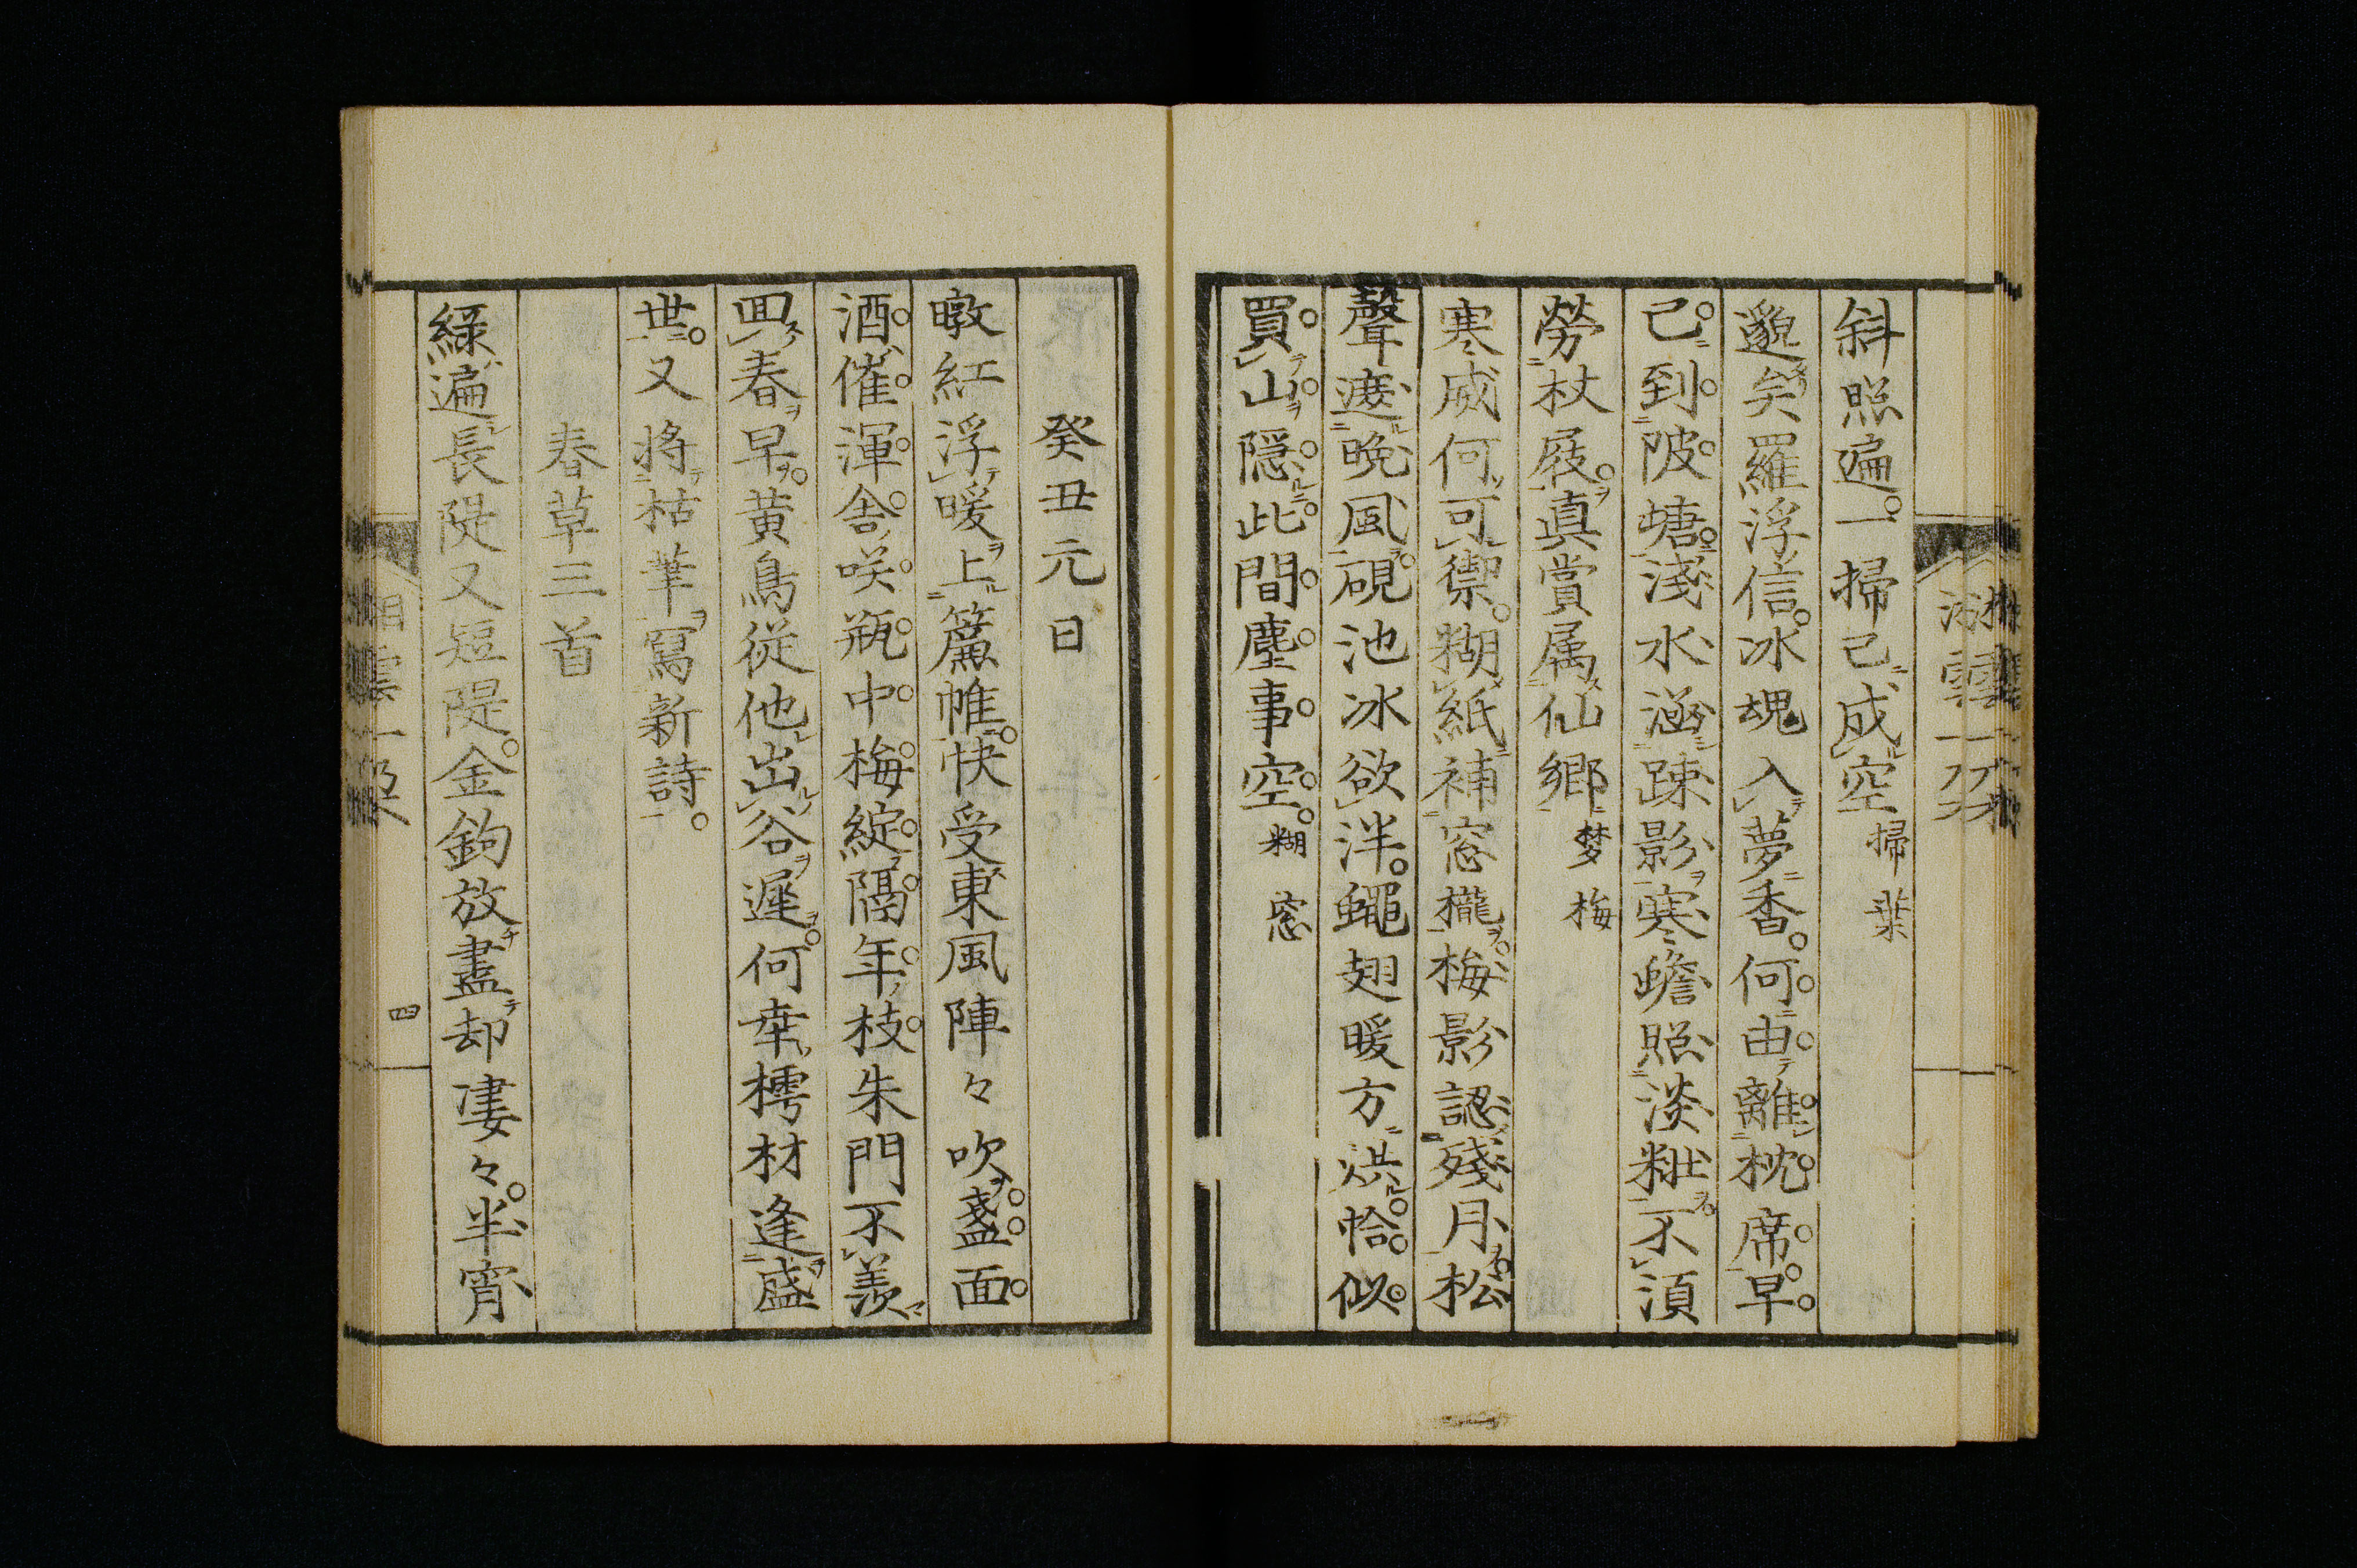 斜照遍。一掃已成空 掃葉
邈矣羅浮信。冰魂入夢香。何由離枕席。早
已到陂塘。淺水涵踈影。寒蟾照淡粧。不須
勞杖屐。真賞属仙郷 梦梅
寒威何可禦。糊紙補窓櫳。梅影認殘月。松
聲遮晩風。硯池冰欲泮。蠅翅暖方烘。恰似
買山隠。此間塵事空。糊窓
癸丑元日
暾紅浮暖上篇帷。快受東風陣々吹。盞面
酒催渾舎咲。瓶中梅綻隔年枝。朱門不羨
回春早。黄鳥従他出谷遅。何幸樗材逢盛
世。又将枯筆寫新詩。
春草三首
緑遍長隄又短隄。金鉤放盡却凄々。半宵
四